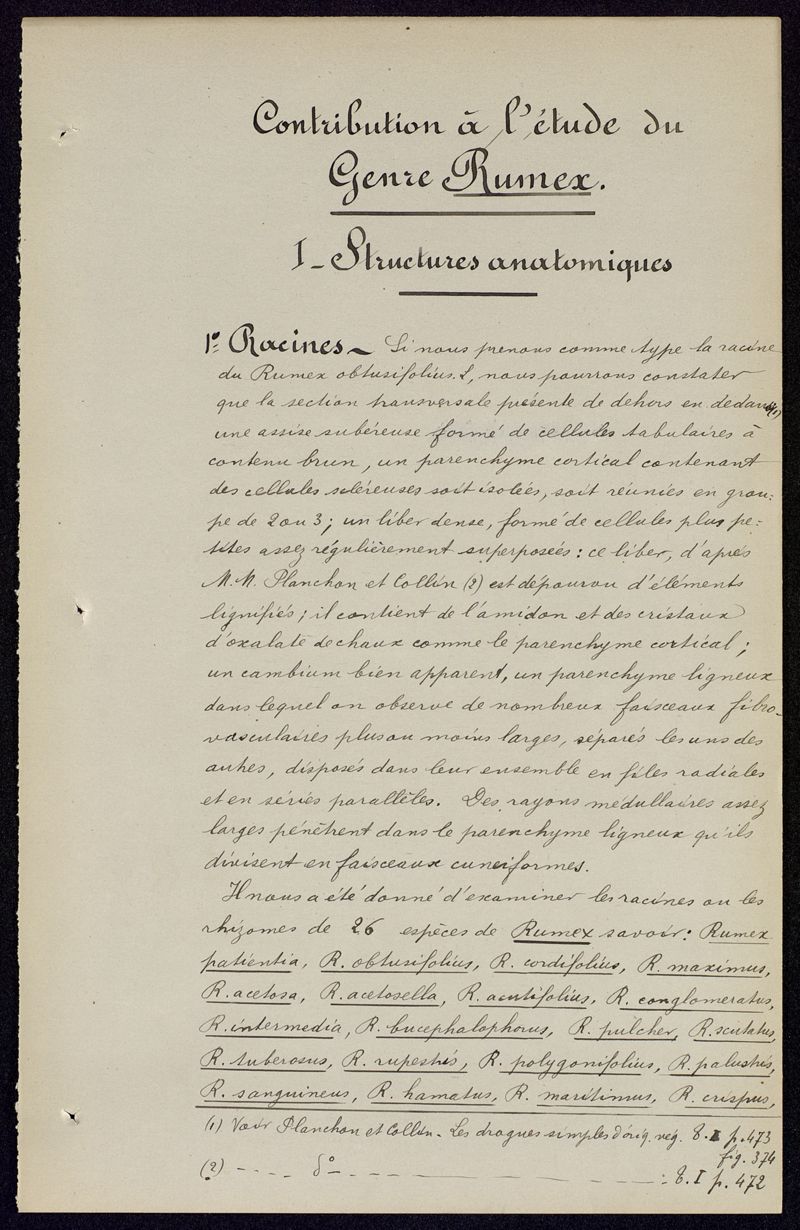 Contribution à l'étude du
Genre Rumex.
I_ Structures anatomiques
1º Racines_ Si nous prenons comme type la racine
du Rumex obtusifolius. L, nous pourrons constater
que la section transversale présente de dehors en dedans (1)
une assise subéreuse formé de cellules tabulaires à
contenu brun, un parenchyme cortical contenant
des cellules scléreuses soit isolées, soit réunies en grou-
pe de 2 ou 3; un liber dense, formé de cellules plus pe-
tites assez régulièrement superposées: ce liber, d'après
M.M. Planchon et Collin (2) est dépourvu d'éléments
lignifiés; il contient de l'amidon et des cristaux
d'oxalate de chaux comme le parenchyme cortical;
un cambium bien apparent, un parenchyme ligneux
dans lequel on observe de nombreux faisceaux fibro-
vasculaires plus ou moins larges, séparés les uns des
autres, disposés dans leur ensemble en files radiales
et en séries parallèles. Des rayons médullaires assez
larges pénètrent dans le parenchyme ligneux qu'ils
divisent en faisceaux cunéiformes.
Il nous a été donné d'examiner les racines ou les
rhizomes de 26 espèces de Rumex savoir: Rumex
patientia, R. obtusifolius, R. cordifolius, R. maximus,
R. acetosa, R. acetosella, R. acutifolius, R. conglomeratus,
R. intermedia, R. bucephalophorus, R. pulcher, R. scutatus,
R. tuberosus, R. rupestris, R. polygonifolius, R. palustris,
R. sanguineus, R. hamatus, R. maritimus, R. crispus,
(1) Voir Planchon et Collin - Les drogues simples d'orig. vég. T. I p. 473
fig. 374
(2) - - - - dº - - - - - - : T. I p. 472